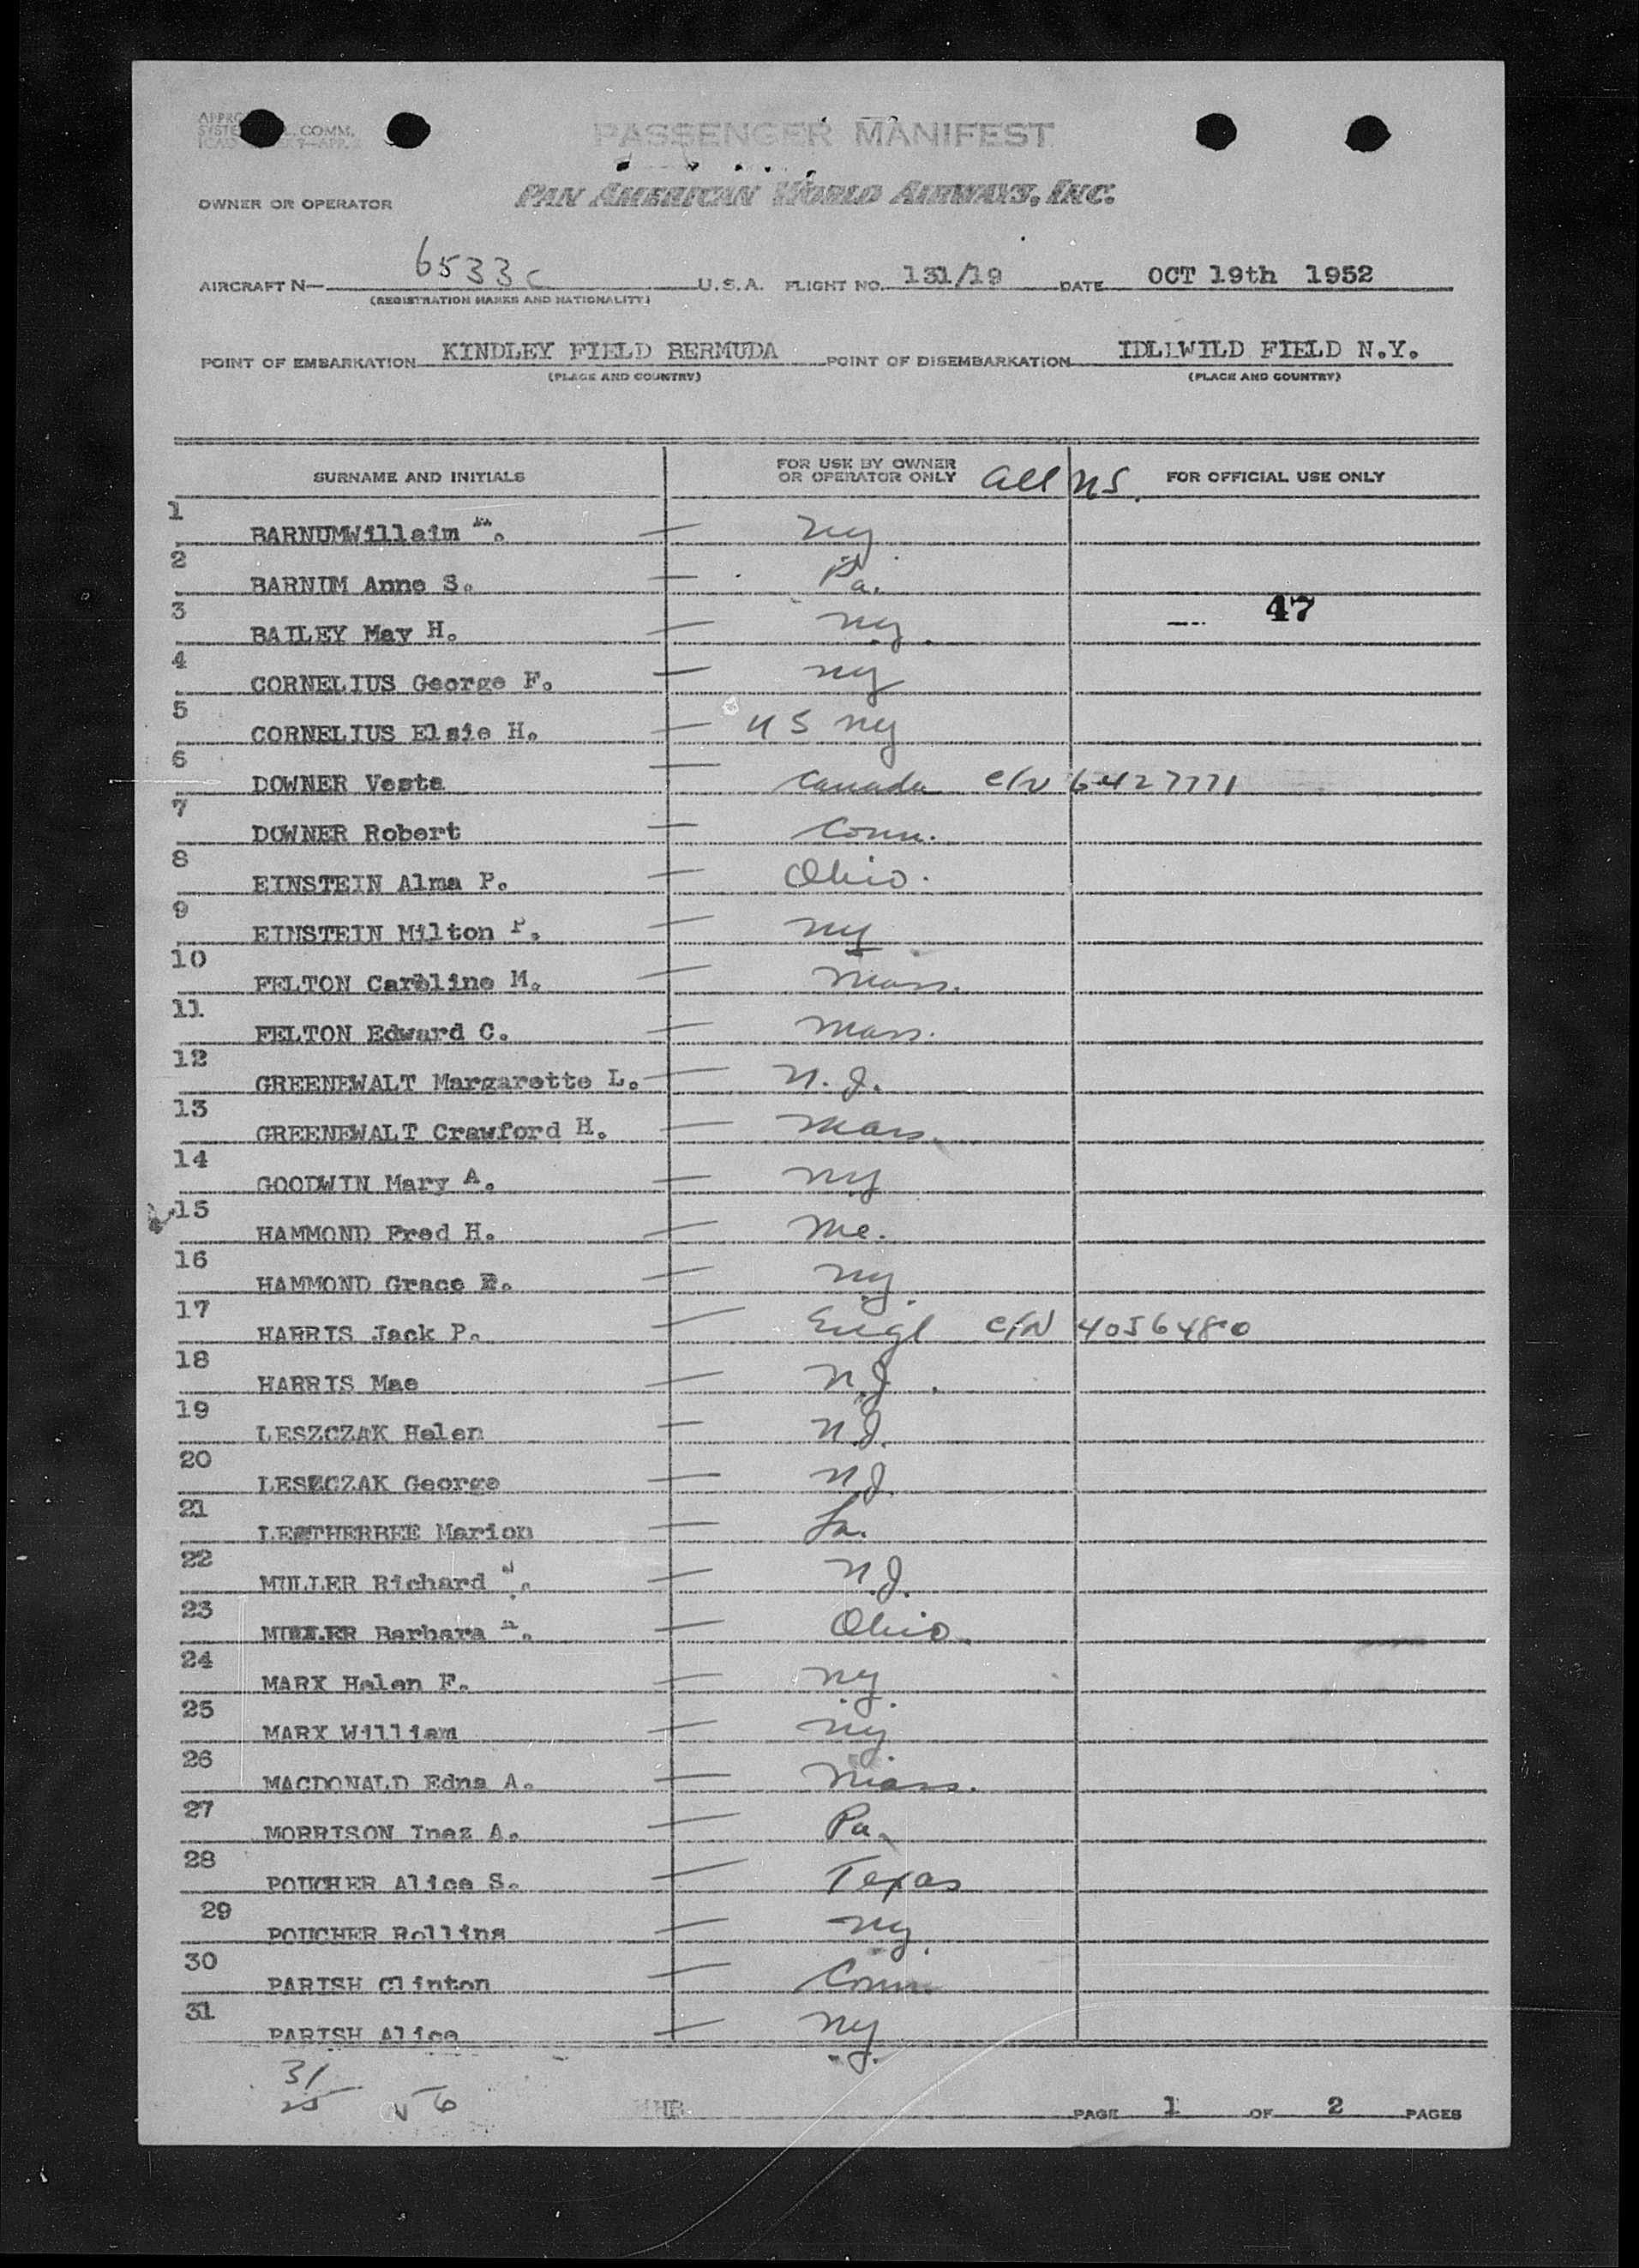 PASSENGER MANIFEST
PAN AMERICAN WORLD AIRWAYS, INC.
OWNER OR OPERATOR
AIRCRAFT N— 6533c U.S.A. FLIGHT NO. 131/19 DATE OCT 19th 1952
(REGISTRATION MARKS AND NATIONALITY)
POINT OF EMBARKATION KINDLEY FIELD BERMUDA POINT OF DISEMBARKATION IDLIWILD FIELD N.Y.
(PLACE AND COUNTRY) (PLACE AND COUNTRY)
SURNAME AND INITIALS FOR USE BY OWNER OR OPERATOR ONLY all US. FOR OFFICIAL USE ONLY
1 BARNUMWillaim — ny
2 BARNUM Anne S. — Pa.
3 BAILEY May H. — ny. --- 47
4 CORNELIUS George F. — ny
5 CORNELIUS Elsie H. — US ny
6 DOWNER Vesta — Canada c/n 6427771
7 DOWNER Robert — Conn.
8 EINSTEIN Alma P. — Ohio.
9 EINSTEIN Milton P. — ny
10 FELTON Caroline M. — Mass.
11 FELTON Edward C. — Mass.
12 GREENEWALT Margarette L. — N.J.
13 GREENEWALT Crawford H. — Mass.
14 GOODWIN Mary A. — ny
15 HAMMOND Fred H. — Me.
16 HAMMOND Grace E. — ny.
17 HARRIS Jack P. — Engl c/N 4056480
18 HARRIS Mae — N.J.
19 LESZCZAK Helen — N.J.
20 LESZCZAK George — N.J.
21 LEATHERBEE Marion — Ia.
22 MULLER Richard J. — N.J.
23 MULLER Barbara — Ohio.
24 MARX Helen F. — ny.
25 MARX William — ny
26 MACDONALD Edna A. — Mass.
27 MORRISON Inez A. — Pa.
28 POUCHER Alice S. — Texas
29 POUCHER Rollins — ny.
30 PARISH Clinton — Conn.
31 PARISH Alice — ny.
31
25 56
PAGE 1 OF 2 PAGES